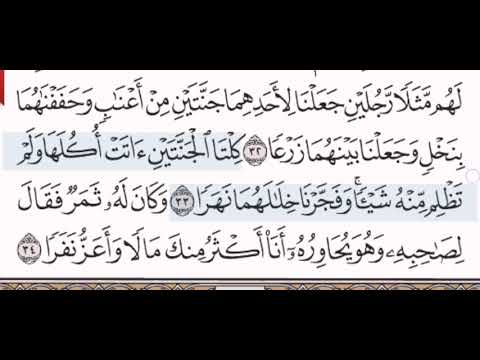 لَهُم مَّثَلًا رَّجُلَيْنِ جَعَلْنَا لِأَحَدِهِمَا جَنَّتَيْنِ مِنْ أَعْنَٰبٍ وَحَفَفْنَٰهُمَا
بِنَخْلٍ وَجَعَلْنَا بَيْنَهُمَا زَرْعًا ٣٢ كِلْتَا ٱلْجَنَّتَيْنِ ءَاتَتْ أُكُلَهَا وَلَمْ
تَظْلِم مِّنْهُ شَيْـًٔا ۚ وَفَجَّرْنَا خِلَٰلَهُمَا نَهَرًا ٣٣ وَكَانَ لَهُۥ ثَمَرٌ فَقَالَ
لِصَٰحِبِهِۦ وَهُوَ يُحَاوِرُهُۥٓ أَنَا۠ أَكْثَرُ مِنكَ مَالًا وَأَعَزُّ نَفَرًا ٣٤